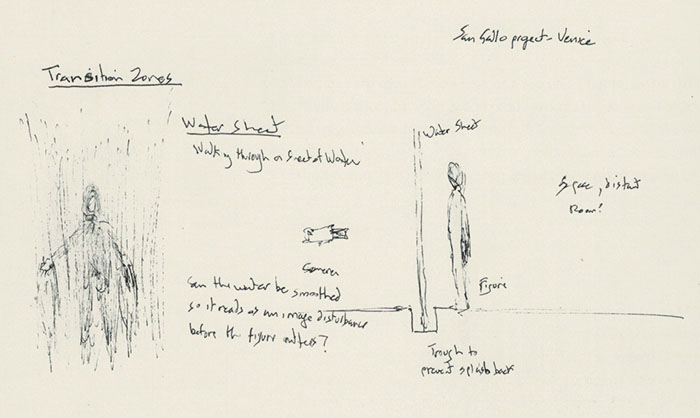 San Gallo project - Venice
Transition Zones
Water Sheet
Walking through a sheet of water
Water Sheet
Space, distant
Room?
Camera
Can the water be smoothed
so it reads as an image disturbance
before the figure enters?
Figure
Trough to
prevent splash back